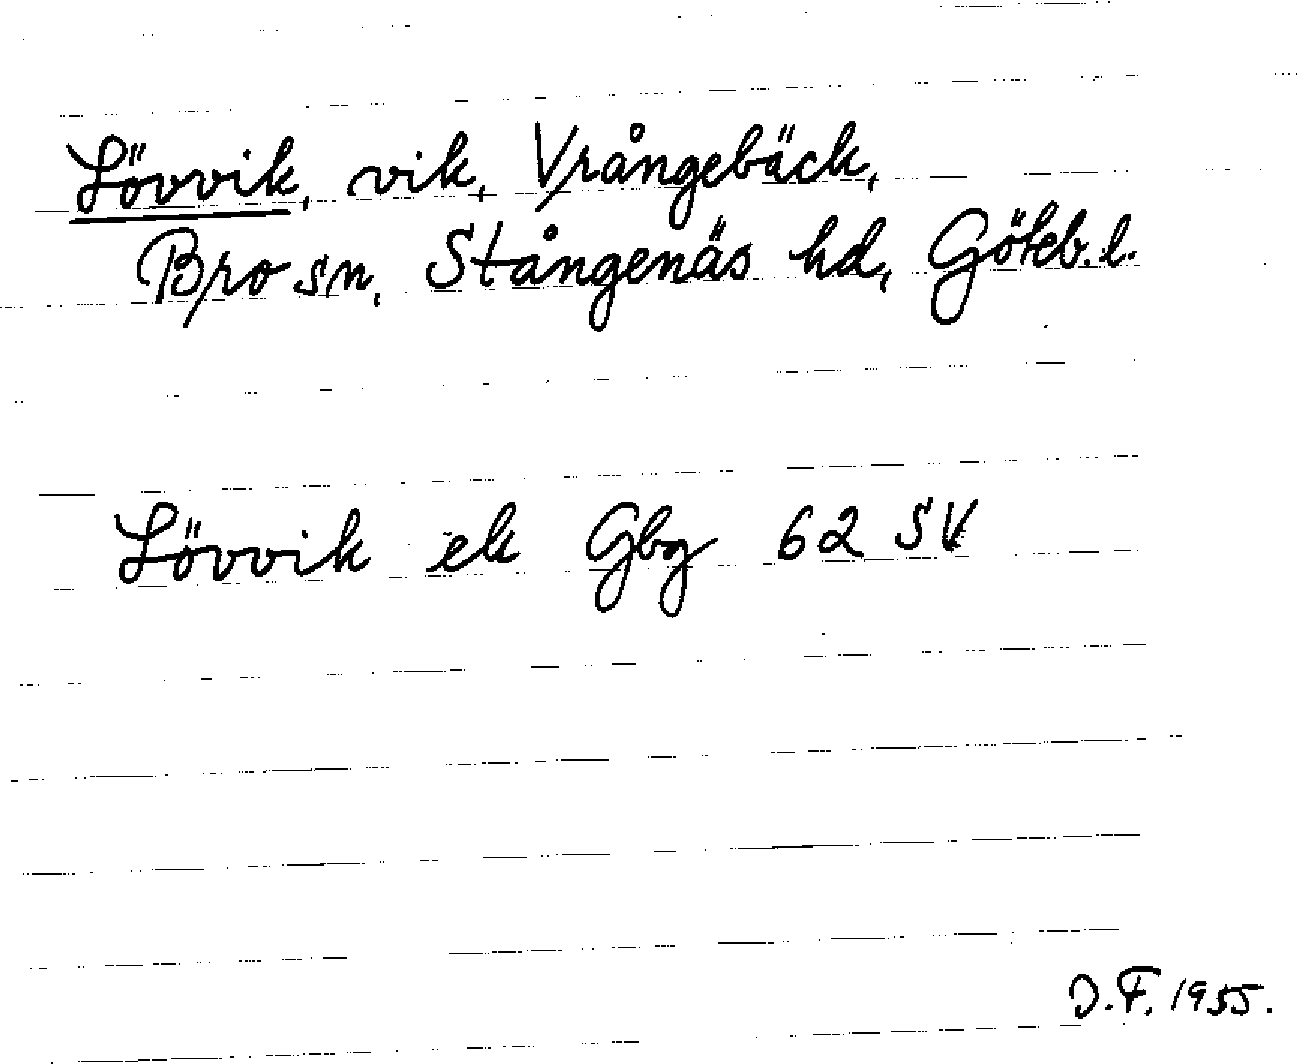 Lövvik, vik, Vrångebäck,
Bro sn, Stångenäs hd, Göteb. l.
Lövvik ek Gbg 62 SV
J. F. 1955.